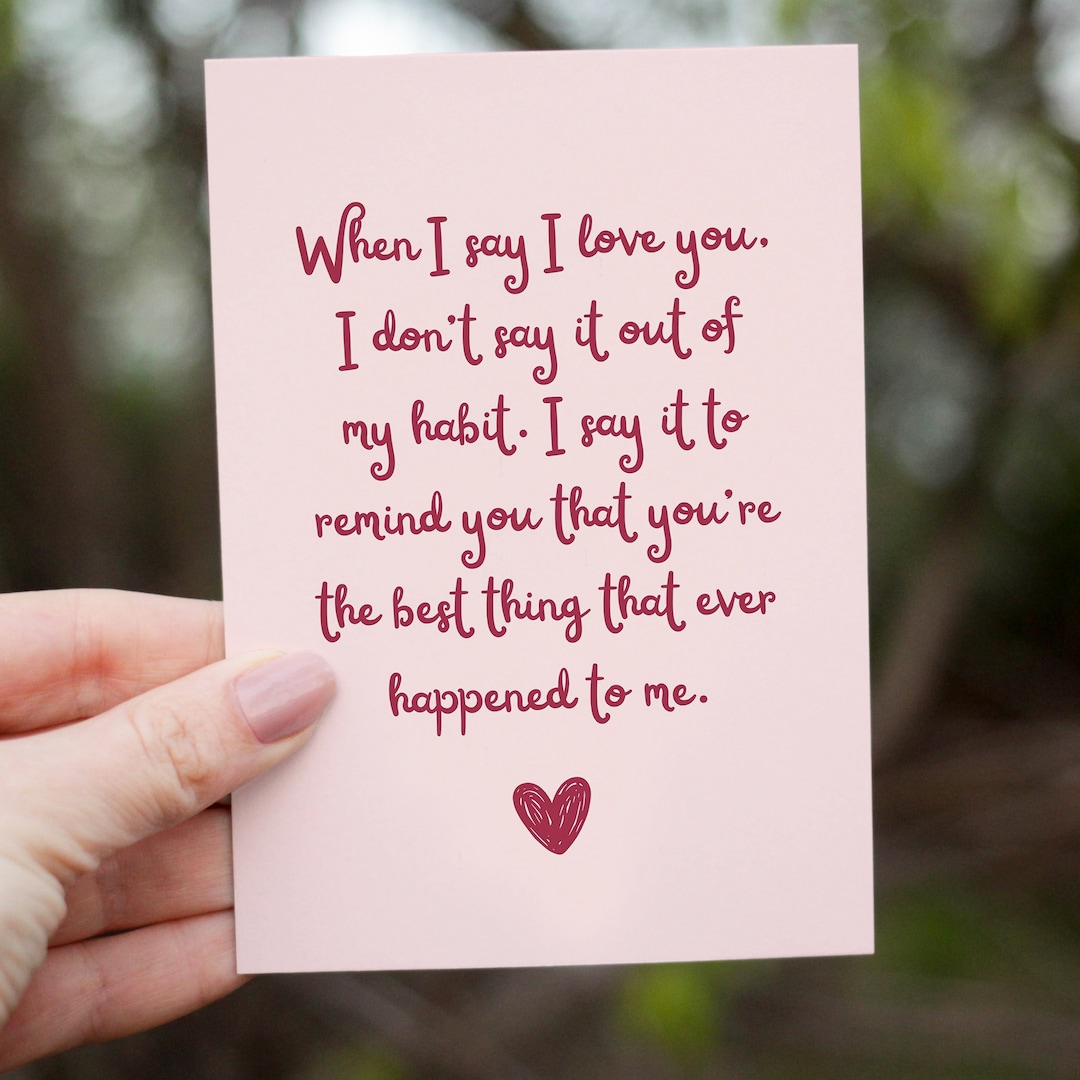 When I say I love you.
I don't say it out of
my habit. I say it to
remind you that you're
the best thing that ever
happened to me.